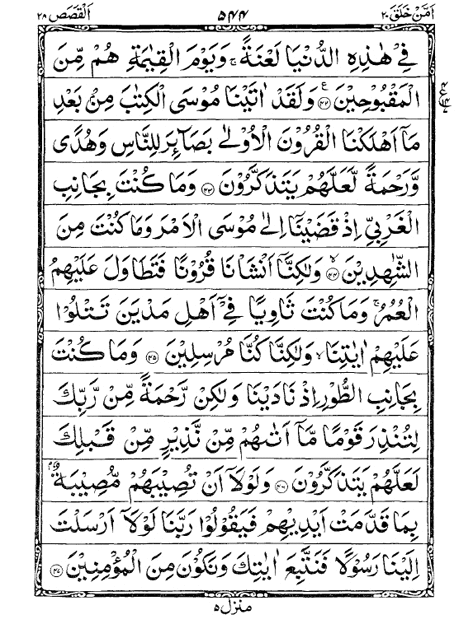 اَمَّنْ خَلَقَ ٢٠ ٥٤٤ اَلْقَصَص ٢٨
فِىْ هٰذِهِ الدُّنْيَا لَعْنَةً ۚ وَيَوْمَ الْقِيٰمَةِ هُمْ مِّنَ
الْمَقْبُوْحِيْنَ ﴿٤٢﴾ وَلَقَدْ اٰتَيْنَا مُوْسَى الْكِتٰبَ مِنْۢ بَعْدِ
مَآ اَهْلَكْنَا الْقُرُوْنَ الْاُوْلٰى بَصَآئِرَ لِلنَّاسِ وَهُدًى
وَّرَحْمَةً لَّعَلَّهُمْ يَتَذَكَّرُوْنَ ﴿٤٣﴾ وَمَا كُنْتَ بِجَانِبِ
الْغَرْبِىِّ اِذْ قَضَيْنَآ اِلٰى مُوْسَى الْاَمْرَ وَمَا كُنْتَ مِنَ
الشّٰهِدِيْنَ ﴿٤٤﴾ وَلٰكِنَّآ اَنْشَاْنَا قُرُوْنًا فَتَطَاوَلَ عَلَيْهِمُ
الْعُمُرُ ۚ وَمَا كُنْتَ ثَاوِيًا فِىْٓ اَهْلِ مَدْيَنَ تَتْلُوْا
عَلَيْهِمْ اٰيٰتِنَا ۙ وَلٰكِنَّا كُنَّا مُرْسِلِيْنَ ﴿٤٥﴾ وَمَا كُنْتَ
بِجَانِبِ الطُّوْرِ اِذْ نَادَيْنَا وَلٰكِنْ رَّحْمَةً مِّنْ رَّبِّكَ
لِتُنْذِرَ قَوْمًا مَّآ اَتٰىهُمْ مِّنْ نَّذِيْرٍ مِّنْ قَبْلِكَ
لَعَلَّهُمْ يَتَذَكَّرُوْنَ ﴿٤٦﴾ وَلَوْلَآ اَنْ تُصِيْبَهُمْ مُّصِيْبَةٌۢ
بِمَا قَدَّمَتْ اَيْدِيْهِمْ فَيَقُوْلُوْا رَبَّنَا لَوْلَآ اَرْسَلْتَ
اِلَيْنَا رَسُوْلًا فَنَتَّبِعَ اٰيٰتِكَ وَنَكُوْنَ مِنَ الْمُؤْمِنِيْنَ ﴿٤٧﴾
منزل ٥